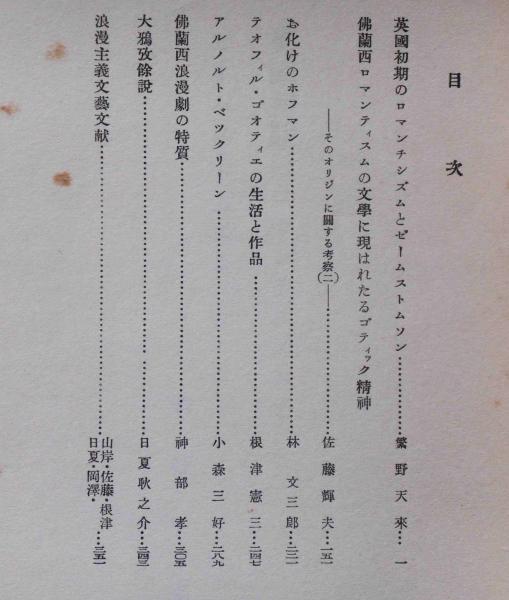 目次
英國初期のロマンチシズムとゼームストムソン…………繁野天來…一
佛蘭西ロマンティスムの文學に現はれたるゴティック精神
――そのオリジンに關する考察(二)――…………佐藤輝夫…一五一
お化けのホフマン…………林文三郎…二三一
テオフィル・ゴオティエの生活と作品…………根津憲三…二四七
アルノルト・ベックリーン…………小森三好…二八九
佛蘭西浪漫劇の特質…………神部孝…三〇五
大鴉攷餘說…………日夏耿之介…三四三
浪漫主義文藝文献…………山岸・佐藤・根津・日夏・岡澤…三五一